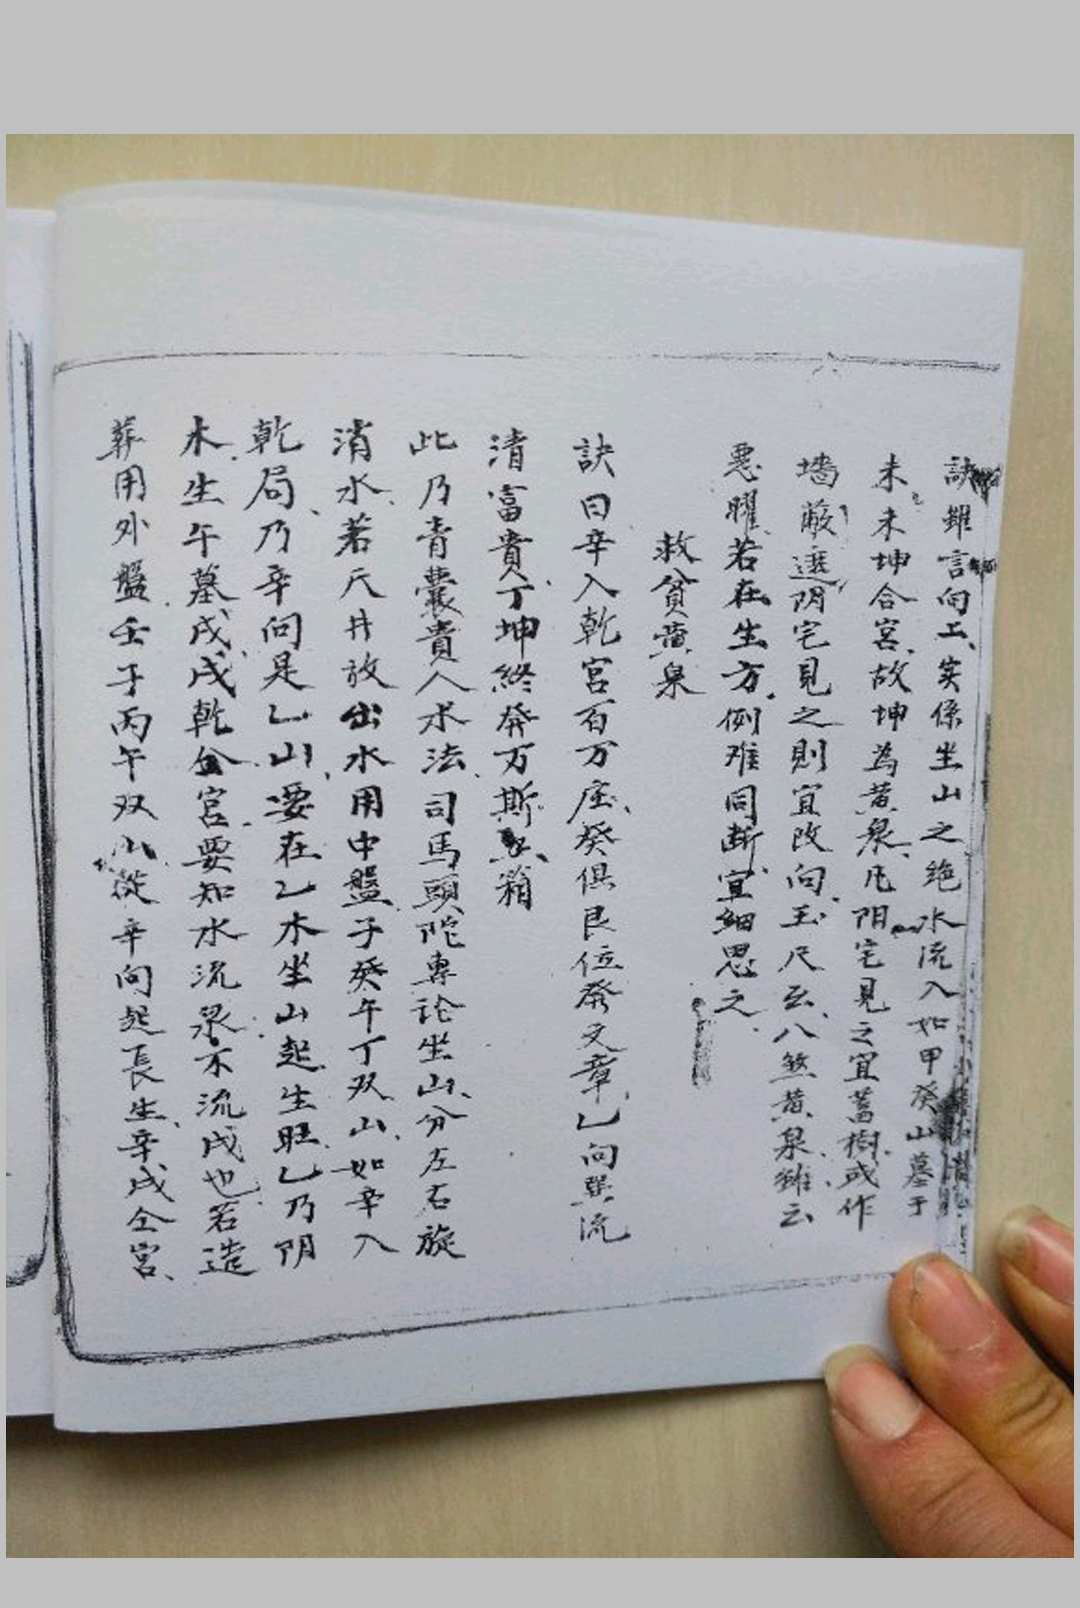 訣雖言向上、实係坐山之绝水流入如甲癸山墓于
未、未坤合宮、故坤為黄泉、凡阴宅見之宜蓄樹、或作
墙蔽遮、阴宅見之則宜改向、玉尺云、八煞黄泉、雖云
悪曜、若在生方、例难同断、宜細思之、
救貧黄泉
訣曰辛入乾宮百万庄、癸俱艮位發文章、乙向巽流
清富貴、丁坤終發万斯箱
此乃青囊貴人水法、司馬頭陀專论坐山、分左右旋
消水、若天井放出水用中盤子癸午丁双山、如辛入
乾局、乃辛向是乙山、要在乙木坐山起生旺、乙乃阴
木、生午墓戌、戌乾仝宮、要知水流泉、不流戌也、若造
葬用外盤壬子丙午双山、從辛向起長生、辛戌仝宮、